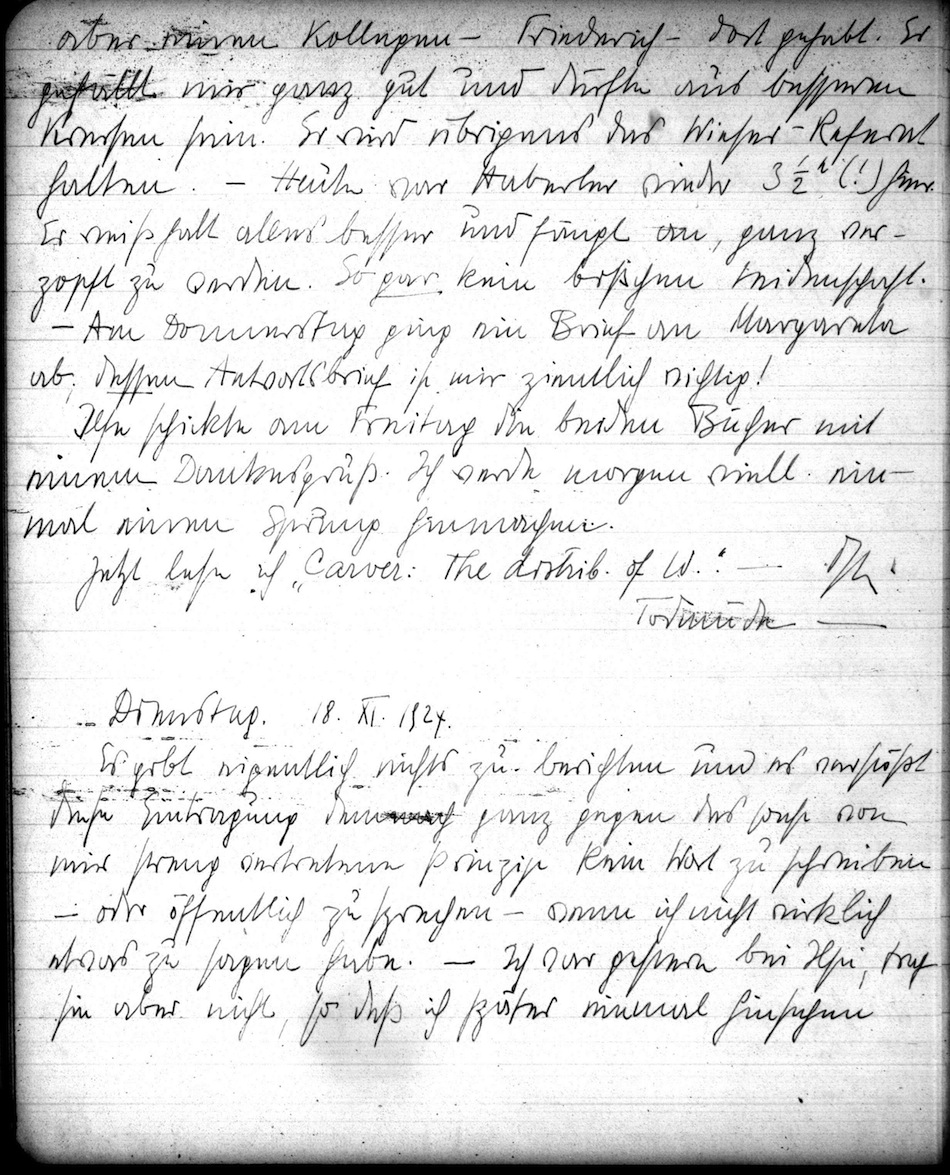 aber einen Kollegen – Friederich – dort gehabt. Er
gefällt mir ganz gut und dürfte aus besseren
Kreisen sein. Er wird übrigens das Wieser-Referat
halten. – Heute war Haberler wieder 3 ½ h (!) hier.
Er weiß halt alles besser und fängt an, ganz ver-
zopft zu werden. So gar kein bißchen Leidenschaft.
– Am Donnerstag ging ein Brief an Margareta
ab, dessen Antwortsbrief ist mir ziemlich wichtig!
Ilse schickte am Freitag die beiden Bücher mit
einem Dankesgruß. Ich werde morgen viell. ein-
mal einen Sprung hinmachen.
Jetzt lese ich „Carver: The distrib. of W.“ —
Todmüde —
Dienstag. 18. XI. 1924.
Es gibt eigentlich nichts zu berichten und es verstößt
diese Eintragung ganz gegen das sonst von
mir streng vertretene Prinzip kein Wort zu schreiben
– oder öffentlich zu sprechen – wenn ich nicht wirklich
etwas zu sagen habe. — Ich war gestern bei Ilse, traf
sie aber nicht, so daß ich später einmal hinsehen